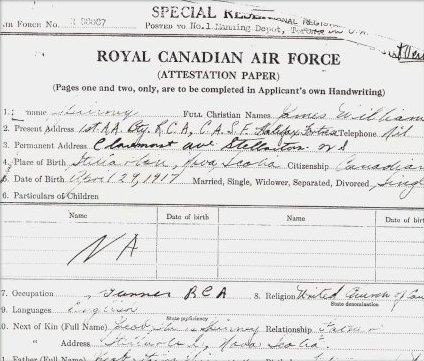 SPECIAL RESE
AIR FORCE No. POSTED TO No.1 Manning Depot, Toronto
ROYAL CANADIAN AIR FORCE
(ATTESTATION PAPER)
(Pages one and two, only, are to be completed in Applicant's own Handwriting)
1. name FULL Christian Names James William
2. Present Address 1st AA Bty. R.C.A., C.A.S.F. Halifax Telephone Nil
3. Permanent Address Claremont ave Stellarton N S
4. Place of Birth Stellarton, Nova Scotia Citizenship Canadian
5. Date of Birth April 29, 1917 Married, Single, Widower, Separated, Divorced, Single
6. Particulars of Children
Name Date of birth Name Date of birth
NA
7. Occupation RCA 8. Religion United Church of Can
State denomination
9. Languages
State proficiency
10. Next of Kin (Full Name) Relationship
" Address Nova Scotia
Father (Full Name)